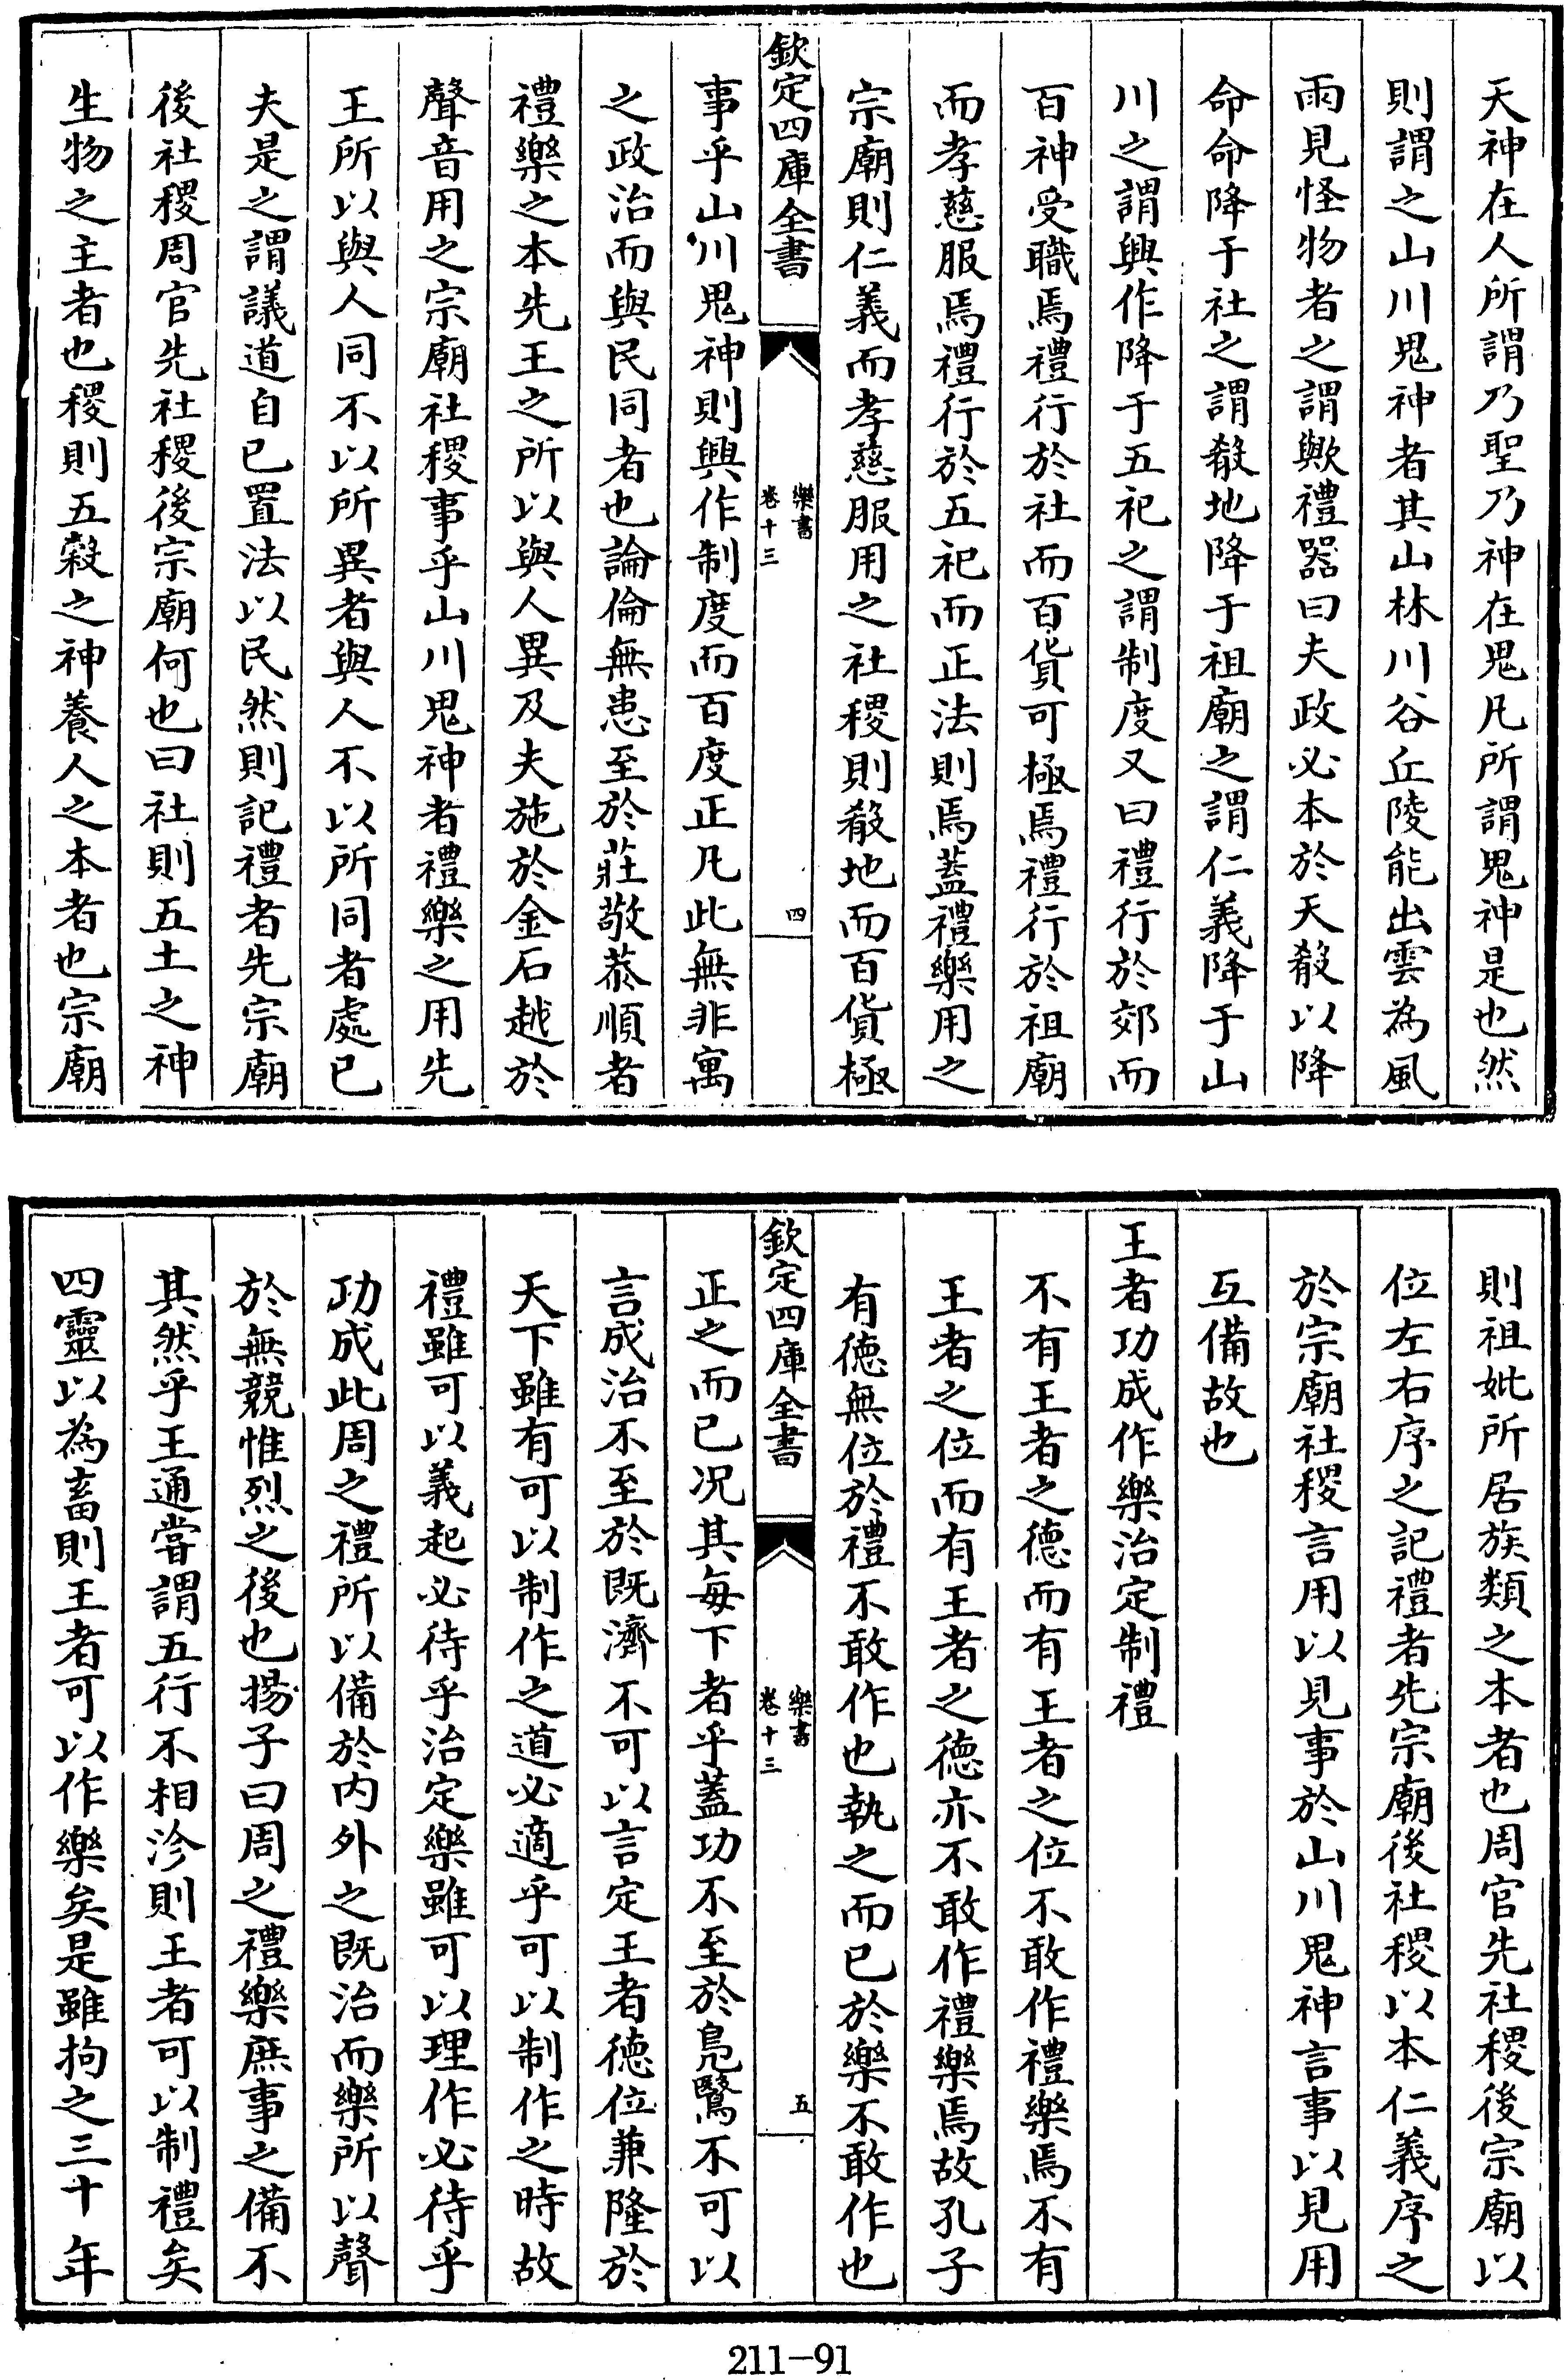 天神在人所謂乃聖乃神在鬼凡所謂鬼神是也然
則謂之山川鬼神者其山林川谷丘陵能出雲為風
雨見怪物者之謂歟禮器曰夫政必本於天殽以降
命命降于社之謂殽地降于祖廟之謂仁義降于山
川之謂興作降于五祀之謂制度又曰禮行於郊而
百神受職焉禮行於社而百貨可極焉禮行於祖廟
而孝慈服焉禮行於五祀而正法則焉蓋禮樂用之
宗廟則仁義而孝慈服用之社稷則殽地而百貨極
欽定四庫全書
樂書
卷十三
四
事乎山川鬼神則興作制度而百度正凡此無非寓
之政治而與民同者也論倫無患至於莊敬恭順者
禮樂之本先王之所以與人異及夫施於金石越於
聲音用之宗廟社稷事乎山川鬼神者禮樂之用先
王所以與人同不以所異者與人不以所同者處已
夫是之謂議道自已置法以民然則記禮者先宗廟
後社稷周官先社稷後宗廟何也曰社則五土之神
生物之主者也稷則五穀之神養人之本者也宗廟
則祖妣所居族類之本者也周官先社稷後宗廟以
位左右序之記禮者先宗廟後社稷以本仁義序之
於宗廟社稷言用以見事於山川鬼神言事以見用
互備故也
王者功成作樂治定制禮
不有王者之德而有王者之位不敢作禮樂焉不有
王者之位而有王者之德亦不敢作禮樂焉故孔子
有德無位於禮不敢作也執之而已於樂不敢作也
欽定四庫全書
樂書
卷十三
五
正之而已况其每下者乎蓋功不至於鳧鷖不可以
言成治不至於既濟不可以言定王者德位兼隆於
天下雖有可以制作之道必適乎可以制作之時故
禮雖可以義起必待乎治定樂雖可以理作必待乎
功成此周之禮所以備於內外之既治而樂所以聲
於無競惟烈之後也揚子曰周之禮樂庶事之備不
其然乎王通嘗謂五行不相沴則王者可以制禮矣
四靈以為畜則王者可以作樂矣是雖拘之三十年
211-91